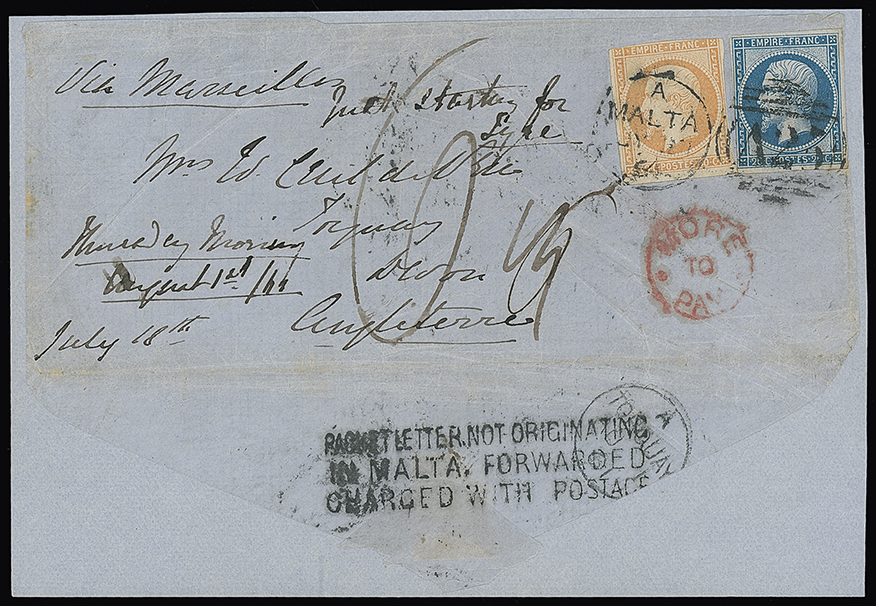 EMPIRE FRANC
EMPIRE FRANC
Via Marseilles
A
MALTA
Just starting for
Tyre
40 C. POSTES 40 C.
20 C. POSTES 20 C.
Mrs W.
Torquay
Thursday Morning
August 1st/61
Devon
MORE
TO
PAY
July 18th
Angleterre
PACKET LETTER NOT ORIGINATING
IN MALTA. FORWARDED
CHARGED WITH POSTAGE
TORQUAY
A